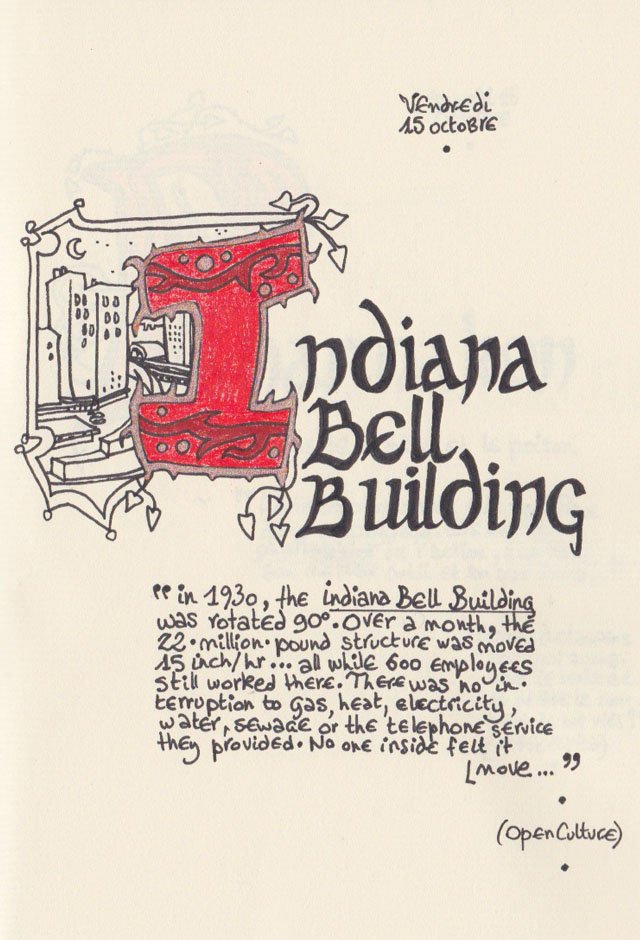 Vendredi
15 octobre
Indiana
Bell
Building
“in 1930, the indiana Bell Building
was rotated 90°. Over a month, the
22-million-pound structure was moved
15 inch/hr... all while 600 employees
still worked there. There was no in-
terruption to gas, heat, electricity,
water, sewage or the telephone service
they provided. No one inside felt it
move...”
(OpenCulture)